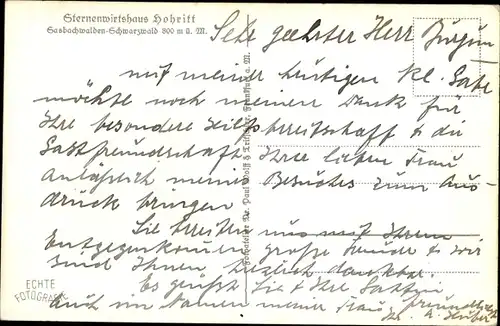 Sternenwirtshaus Hohritt
Sasbachwalden-Schwarzwald 800 m ü. M.
Sehr geehrter Herr
mit meiner heutigen kl. Gabe
möchte noch meinen Dank für
Ihre besondere Hilfsbereitschaft & die
Gastfreundschaft Ihrer lieben Frau
Anläßlich meines Besuches zum Aus-
druck bringen
Sie bereiten uns mit Ihrem
Entgegenkommen große Freude & wir
sind Ihnen herzlich dankbar.
Es grüßt Sie & Ihre Gattin
auch im Namen meiner Frau freundlichst
Fotografie Dr. Paul Wolff & Tritschler, Frankfurt a. M.
ECHTE
FOTOGRAFIE